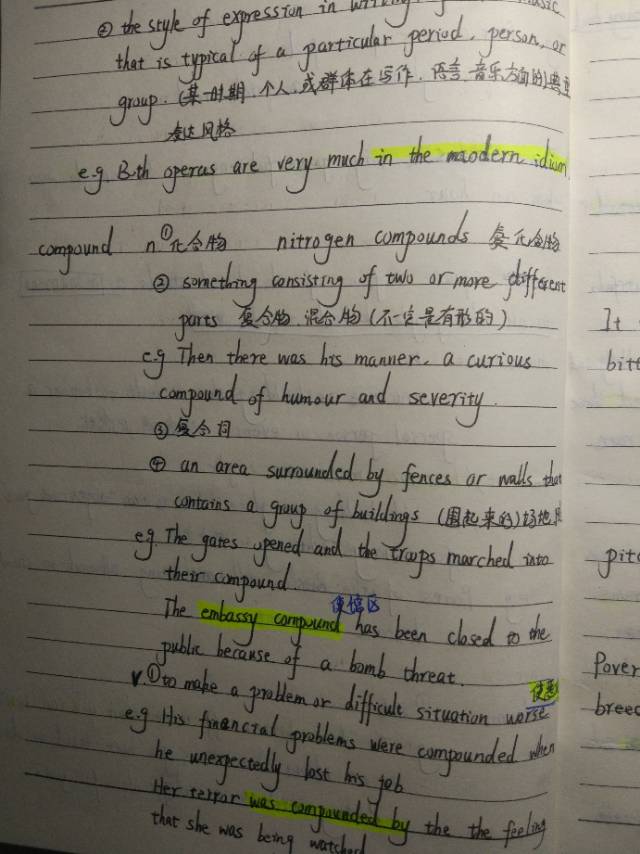 ② the style of expression in writing
that is typical of a particular period, person, or
group. (某一时期、个人、或群体在写作、语言、音乐方面的)典型
表达风格
e.g. Both operas are very much in the maodern idiom
compound n ①化合物 nitrogen compounds 氮化合物
② something consisting of two or more different
parts 复合物、混合物(不一定是有形的)
e.g Then there was his manner, a curious
compound of humour and severity.
③ 复合词
④ an area surrounded by fences or walls that
contains a group of buildings (围起来的)场地
eg The gates opened and the troops marched into
their compound.
使馆区
The embassy compound has been closed to the
public because of a bomb threat.
v. ① to make a problem or difficult situation worse
e.g His financial problems were compounded when
he unexpectedly lost his job
Her terror was compounded by the the feeling
that she was being watched
It
bitt
pitc
Pover
breed